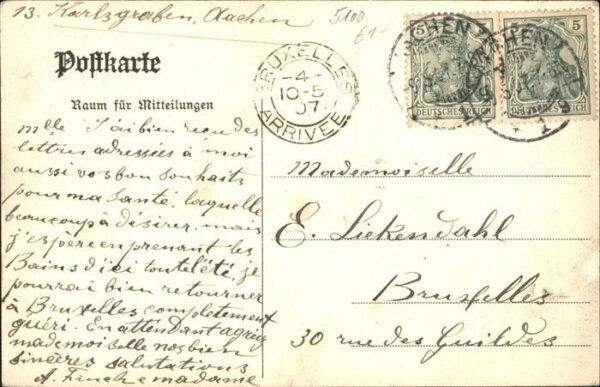 13. Karlsgraben, Aachen
5100
61-
Postkarte
Raum für Mitteilungen
Mlle J'ai bien reçu des
lettres adressées à moi
aussi vos bon souhaits
pour ma santé, laquelle
beaucoup à désirer, mais
j'espère en prenant les
Bains d'ici tout l'été, je
pourrai bien retourner
à Bruxelles completement
guéri. En attendant agréez
mademoiselle nos bien
sincères salutations
A. e madame
BRUXELLES
-4-
10-5
07
ARRIVÉE
5
DEUTSCHES REICH
5
DEUTSCHES REICH
Mademoiselle
E. Liekendahl
Bruxelles
30 rue des Guildes